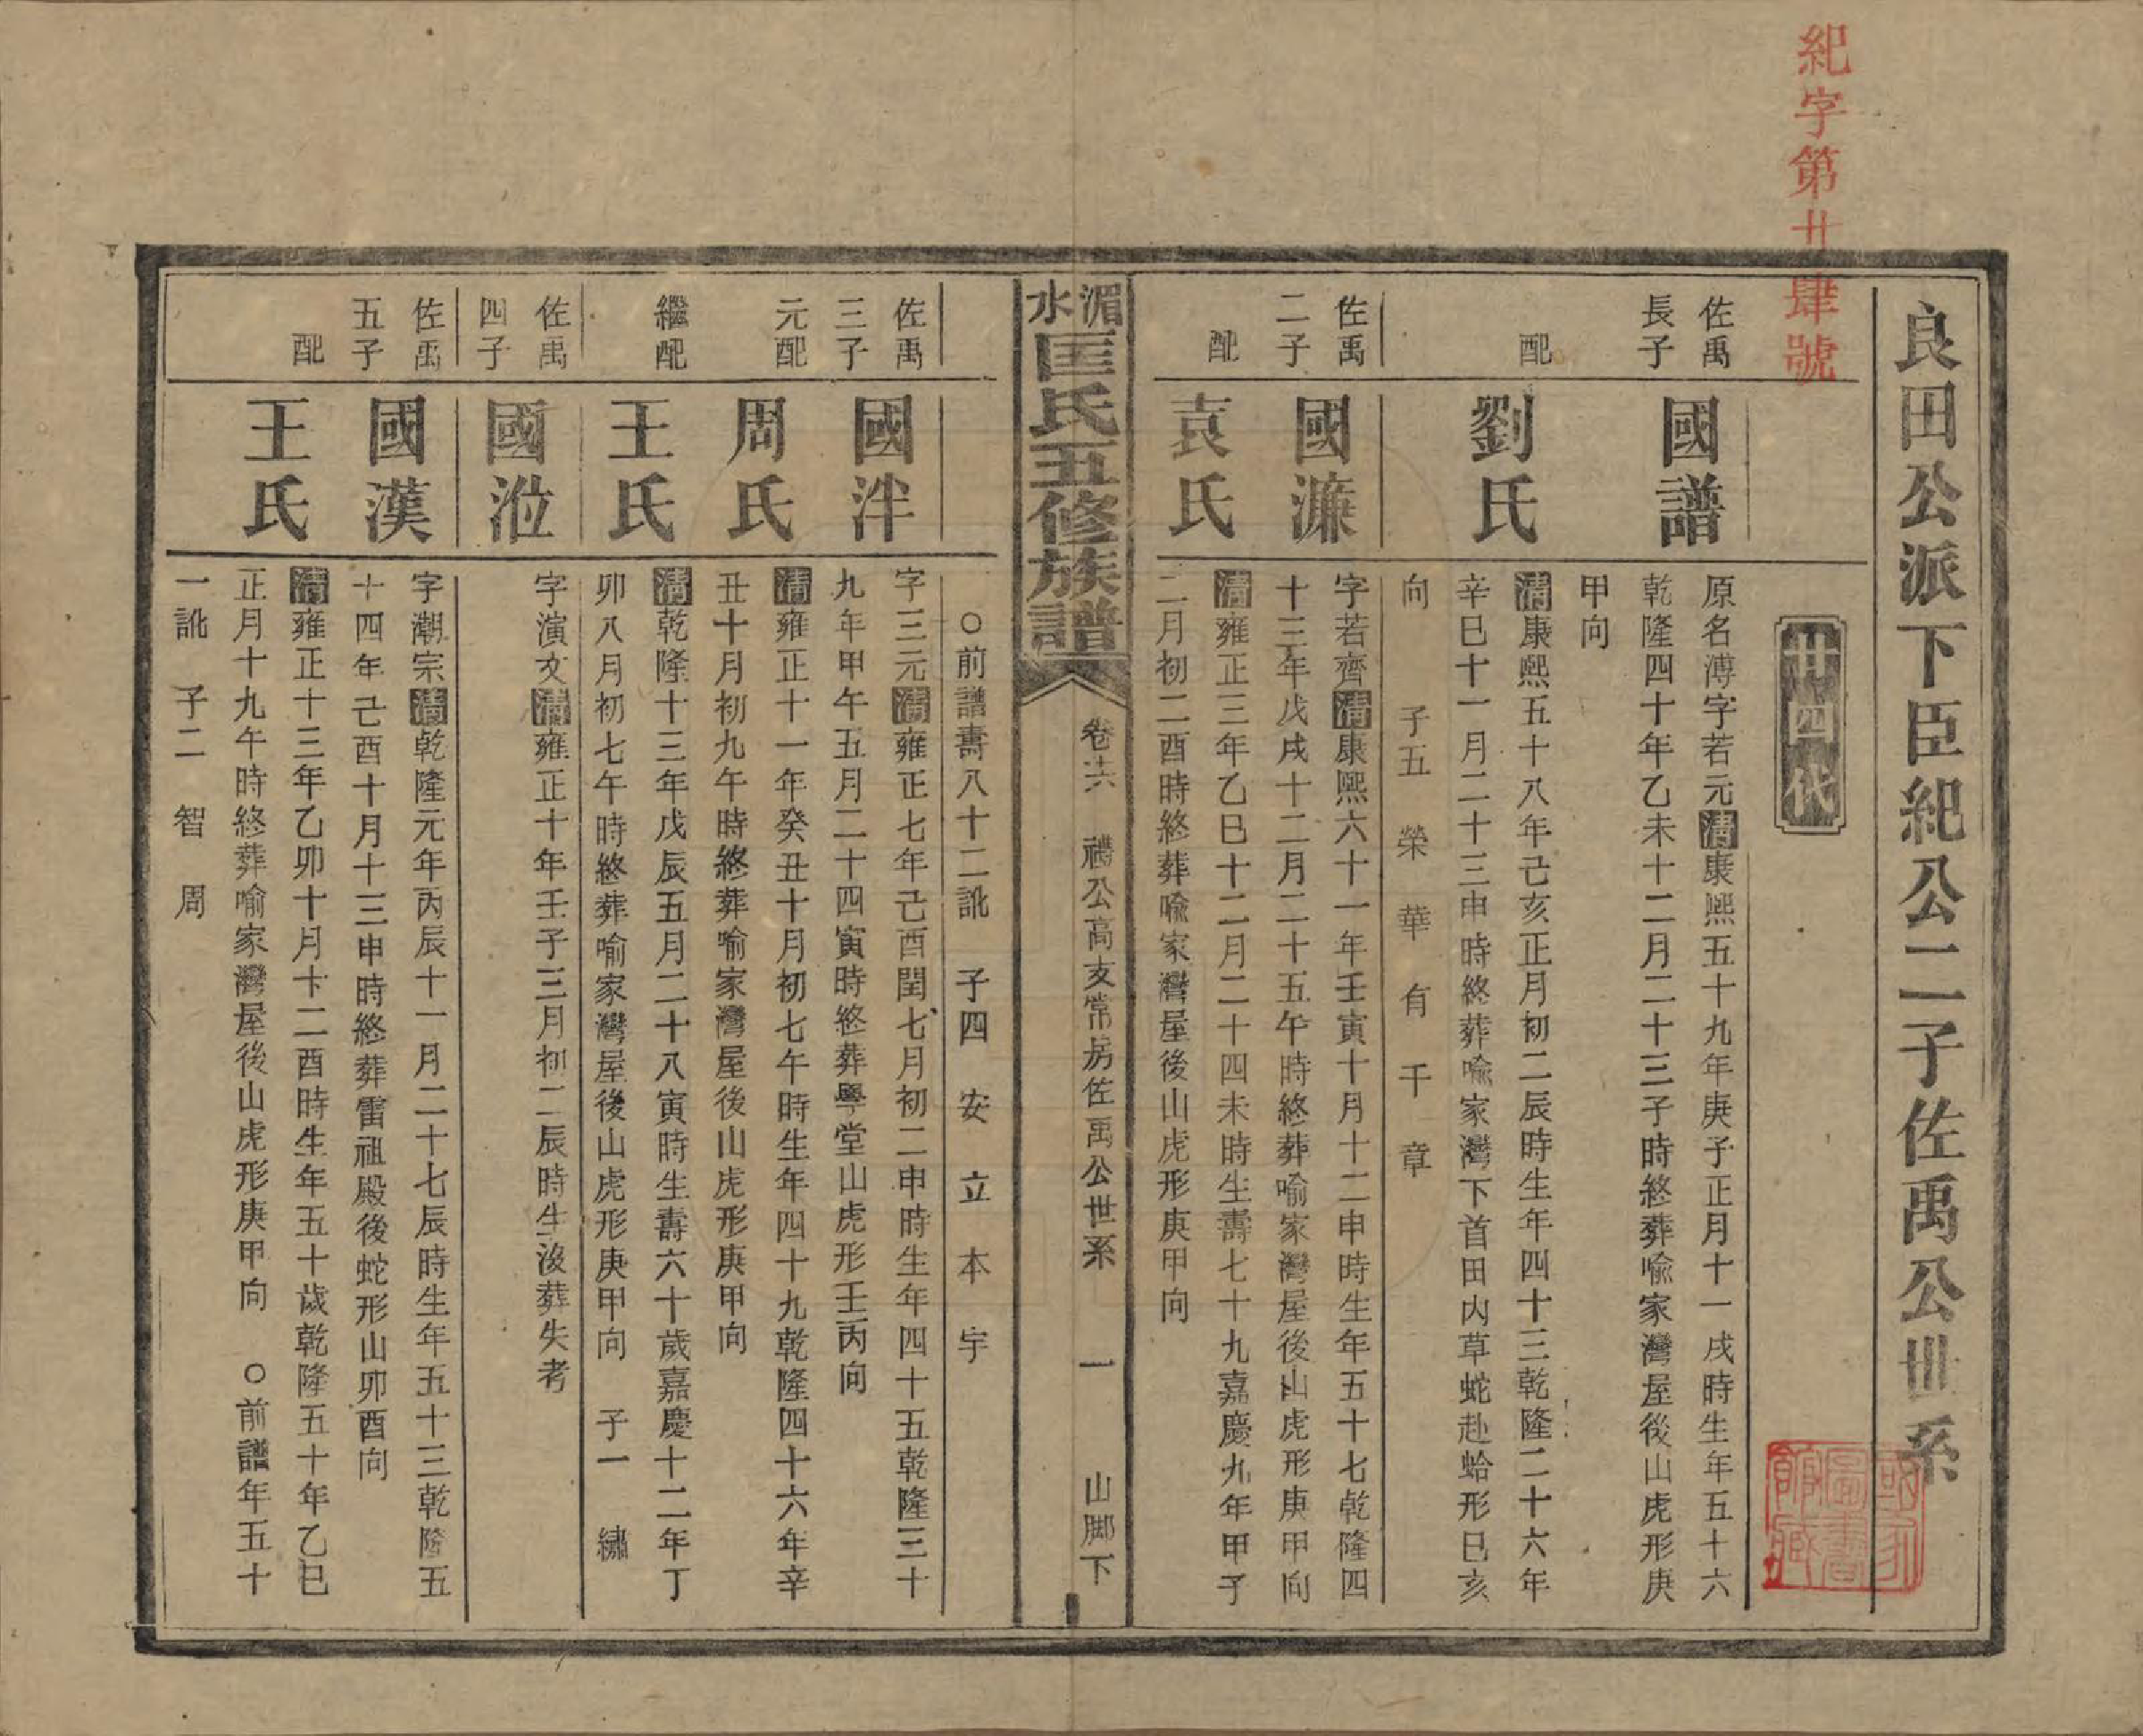 紀字第廿肆號
良田公派下臣紀公二子佐禹公世系
廿四代
佐禹長子
國譜
原名溥字若元清康熙五十九年庚子正月十一戌時生年五十六
乾隆四十年乙未十二月二十三子時終葬喩家灣屋後山虎形庚
甲向
配
劉氏
清康熙五十八年己亥正月初二辰時生年四十三乾隆二十六年
辛巳十一月二十三申時終葬喩家灣下首田內草蛇赴蛤形巳亥
向 子五 榮 華 有 千 章
佐禹二子
國濂
字若齊清康熙六十一年壬寅十月十二申時生年五十七乾隆四
十三年戊戌十二月二十五午時終葬喩家灣屋後山虎形庚甲向
配
袁氏
清雍正三年乙巳十二月二十四未時生壽七十九嘉慶九年甲子
二月初二酉時終葬喩家灣屋後山虎形庚甲向
湄水匡氏五修族譜
卷六 禮公高支常房佐禹公世系 一 山腳下
○前譜壽八十二訛 子四 安 立 本 宇
佐禹三子
國泮
字三元清雍正七年己酉閏七月初二申時生年四十五乾隆三十
九年甲午五月二十四寅時終葬學堂山虎形壬丙向
元配
周氏
清雍正十一年癸丑十月初七午時生年四十九乾隆四十六年辛
丑十月初九午時終葬喻家灣屋後山虎形庚甲向
繼配
王氏
清乾隆十三年戊辰五月二十八寅時生壽六十歲嘉慶十二年丁
卯八月初七午時終葬喻家灣屋後山虎形庚甲向 子一 繡
佐禹四子
國涖
字演文清雍正十年壬子三月初二辰時生沒葬失考
佐禹五子
國漢
字潮宗清乾隆元年丙辰十一月二十七辰時生年五十三乾隆五
十四年己酉十月十三申時終葬雷祖殿後蛇形山卯酉向
配
王氏
清雍正十三年乙卯十月十二酉時生年五十歲乾隆五十年乙巳
正月十九午時終葬喻家灣屋後山虎形庚甲向 ○前譜年五十
一訛 子二 智 周
國家圖書館藏